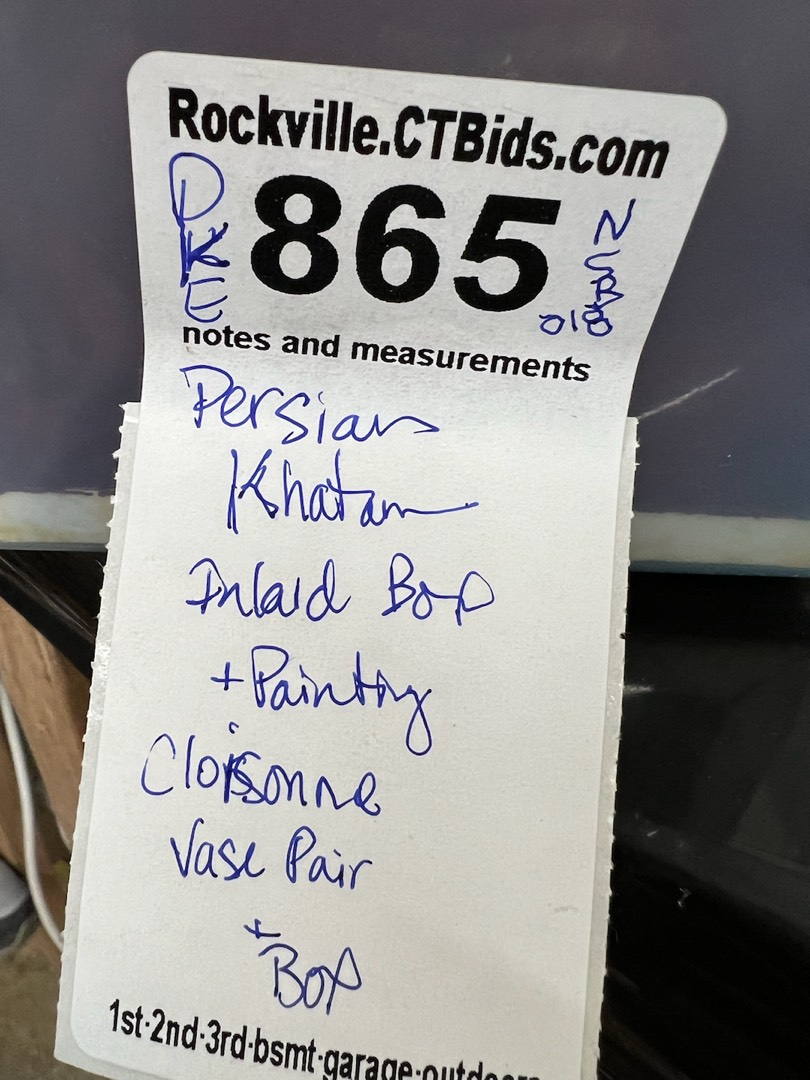 Rockville.CTBids.com
DKE 865 NSB
018
notes and measurements
Persian
Khatam
Inlaid Box
+ Painting
Cloisonne
Vase Pair
+
Box
1st·2nd·3rd·bsmt·garage·outdoors